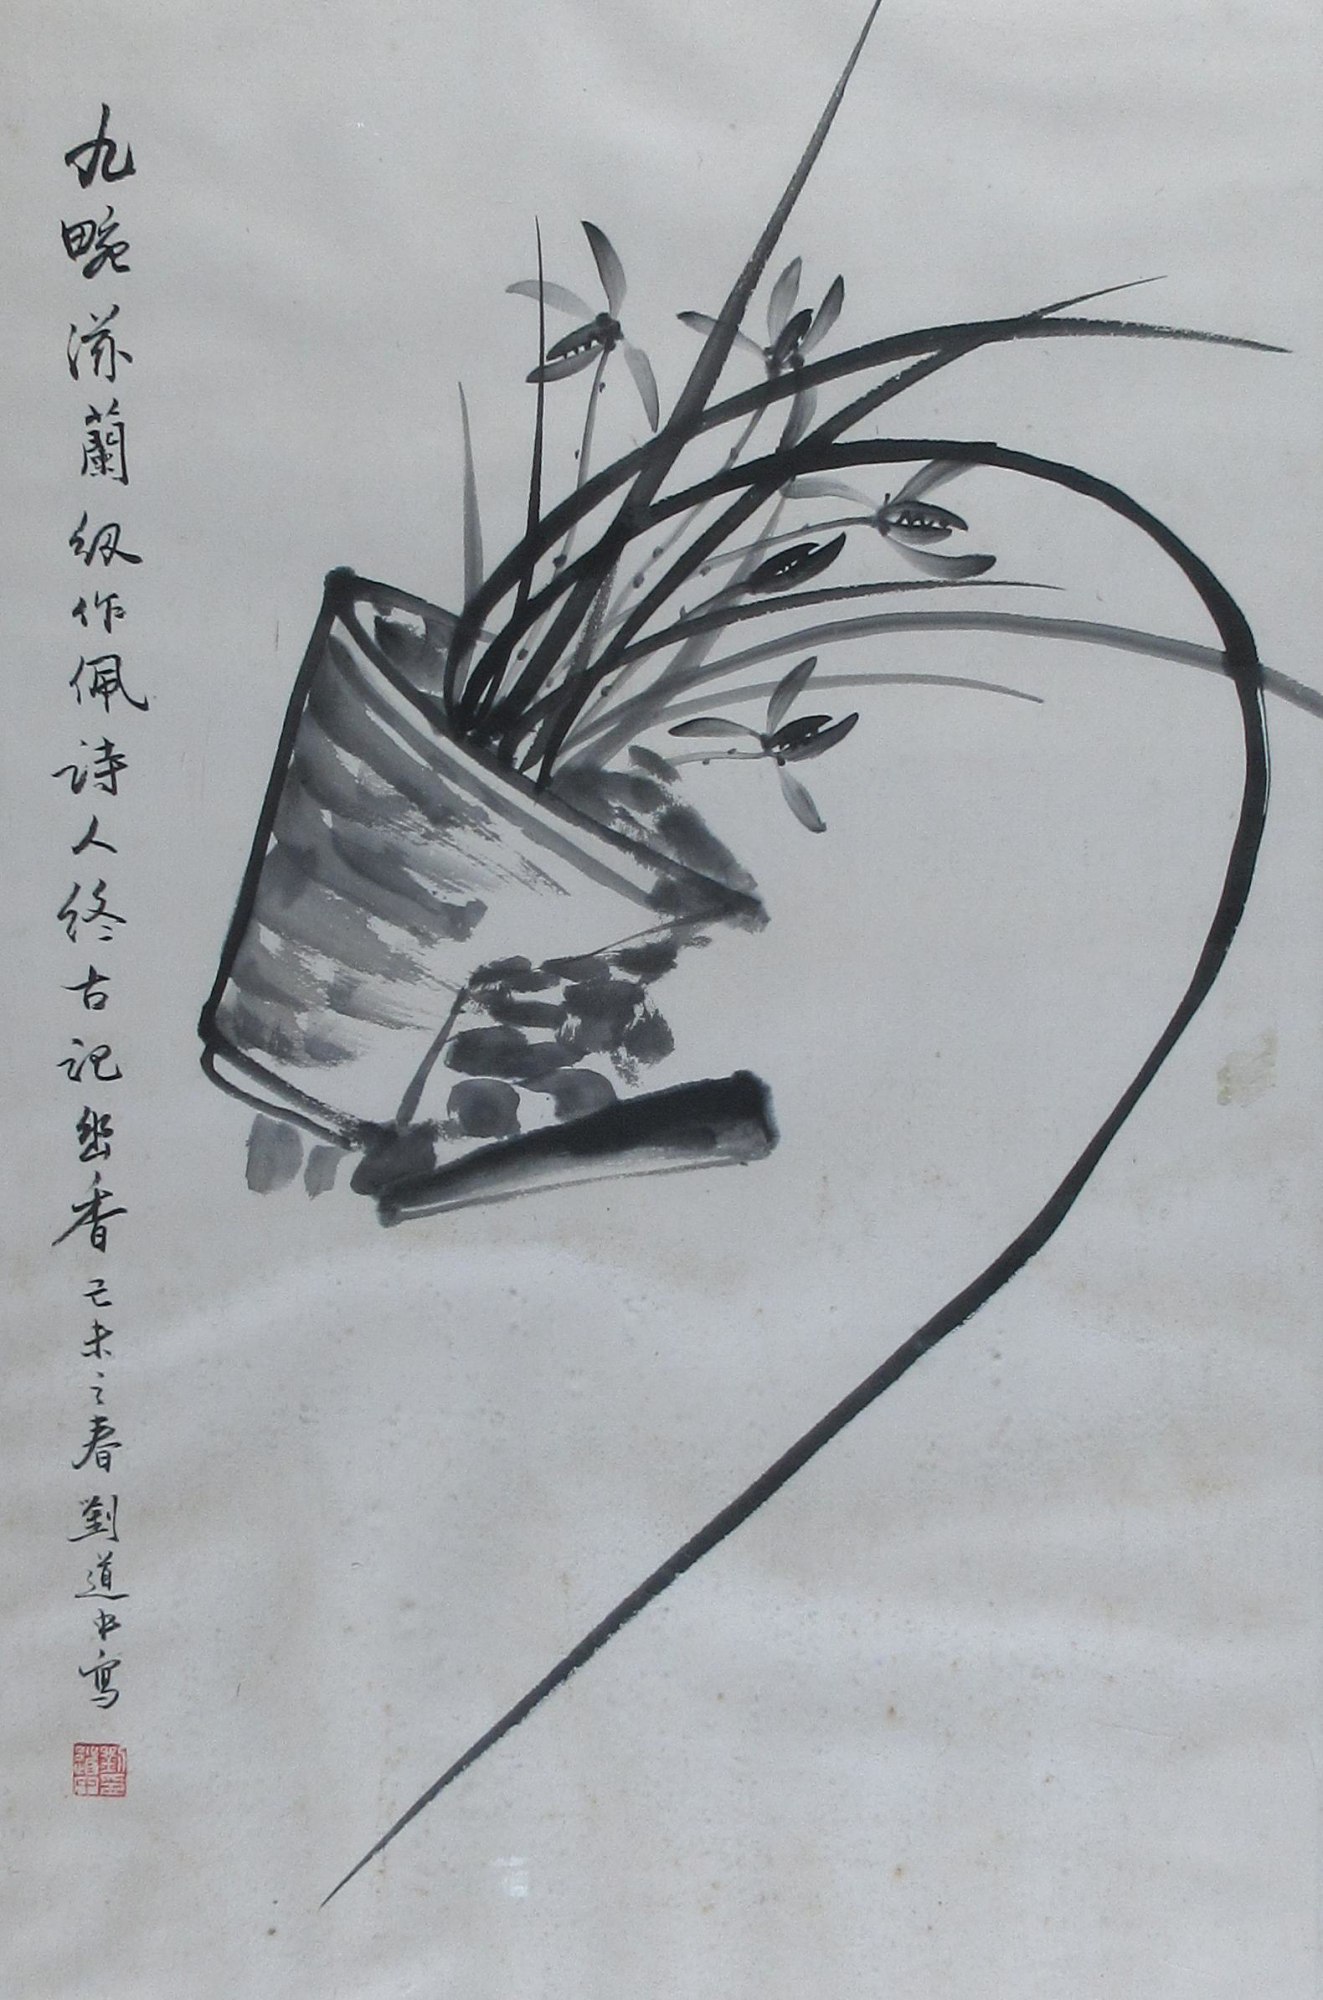 九畹滋蘭紉作佩詩人終古記幽香己未之春劉道中寫